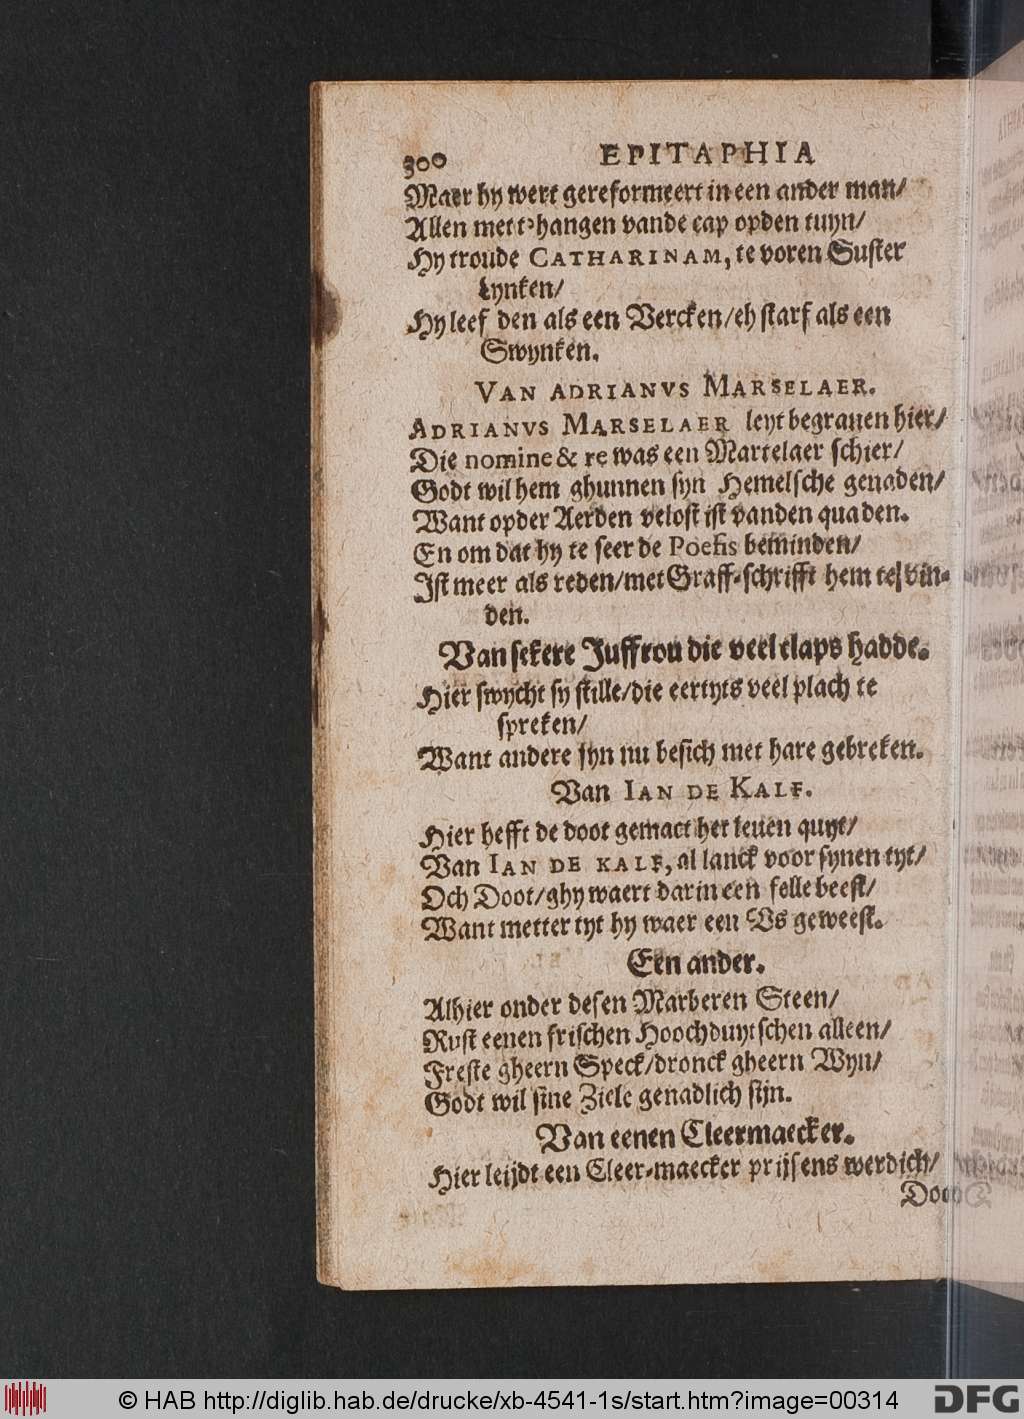 300 EPITAPHIA
Maer hy wert gereformeert in een ander man/
Allen met t'hangen vande cap opden tuyn/
Hy troude CATHARINAM, te voren Suster
Lynken/
Hy leef den als een Vercken/eh starf als een
Swynken.
VAN ADRIANVS MARSELAER.
ADRIANVS MARSELAER leyt begrauen hier/
Die nomine & re was een Martelaer schier/
Godt wil hem ghunnen syn Hemelsche genaden/
Want opder Aerden velost ist vanden quaden.
En om dat hy te seer de Poesis beminden/
Ist meer als reden/met Graff-schrifft hem te vin-
den.
Van sekere Juffrou die veel claps hadde.
Hier swycht sy stille/die eertyts veel plach te
spreken/
Want andere syn nu besich met hare gebreken.
Van IAN DE KALF.
Hier hefft de doot gemact het leuen quyt/
Van IAN DE KALF, al lanck voor synen tyt/
Och Doot/ghy waert dar in een felle beest/
Want metter tyt hy waer een Os geweest.
Een ander.
Alhier onder desen Marberen Steen/
Rust eenen frischen Hoochduytschen alleen/
Freste gheern Speck/dronck gheern Wyn/
Godt wil sine Ziele genadlich sijn.
Van eenen Cleermaecker.
Hier leijdt een Cleer-maecker prijsens werdich/
Doo
© HAB http://diglib.hab.de/drucke/xb-4541-1s/start.htm?image=00314 DFG